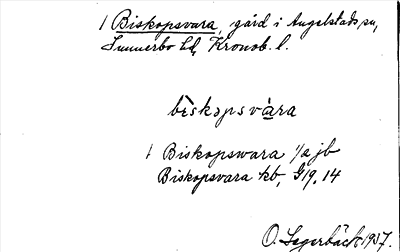 / Biskopsvara, gård i Angelstads sn,
Sunnerbo hd, Kronob. l.
bìskəpsvàra
/ Biskopswara 1/a jb
Biskopsvara kb, G19, 14
O. Lagerbäck 1937.